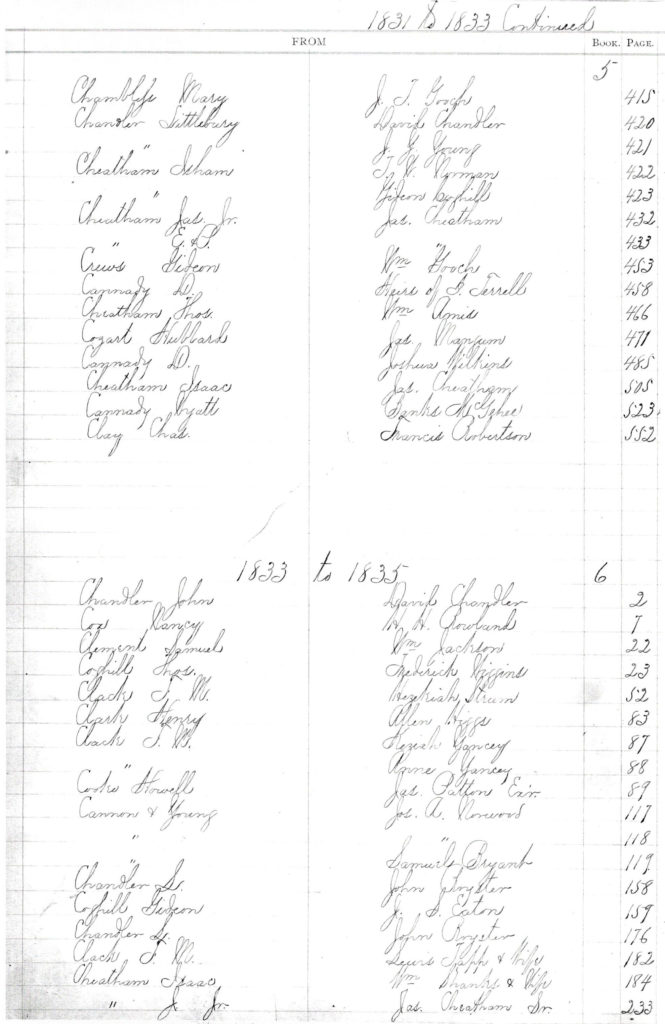 1831 to 1833 Continued
FROM BOOK. PAGE.
5
Chambless Mary J. T. Gooch 415
Chandler Littlebury David Chandler 420
" J. Y. Young 421
Cheatham Isham T. W. Norman 422
" Gideon Coghill 423
Cheatham Jas. Jr. Jas. Cheatham 432
" E. & P. " 433
Crews Gideon Wm Gooch 453
Cannady D. Heirs of Terrell 458
Cheatham Thos. Wm Amis 466
Cozart Hubbard Jas. Mangum 471
Cannady D. Joshua Wilkins 485
Cheatham Isaac Jas. Cheatham 505
Cannady Wyatt Banks McGehee 523
Clay Chas. Francis Robertson 552
1833 to 1835 6
Chandler John David Chandler 2
Cox Nancy H. Rowland 7
Clement Samuel Wm Jackson 22
Coghill Thos. Frederick Wiggins 23
Clack T. M. Hezekiah Strum 52
Clark Henry Allen Biggs 83
Clack T. M. Keziah Yancey 87
" Anne Yancey 88
Cooke Howell Jas. Patton Exr. 89
Cannon & Young Jos. A. Norwood 117
" " 118
" Samuel Bryant 119
Chandler S. John Royster 158
Coghill Gideon J. S. Eaton 159
Chandler John Royster 176
Clack T. M. Lewis Tapp & Wife 182
Cheatham Isaac Wm Shanks & Wife 184
" J. Jr. Jas. Cheatham Sr. 233